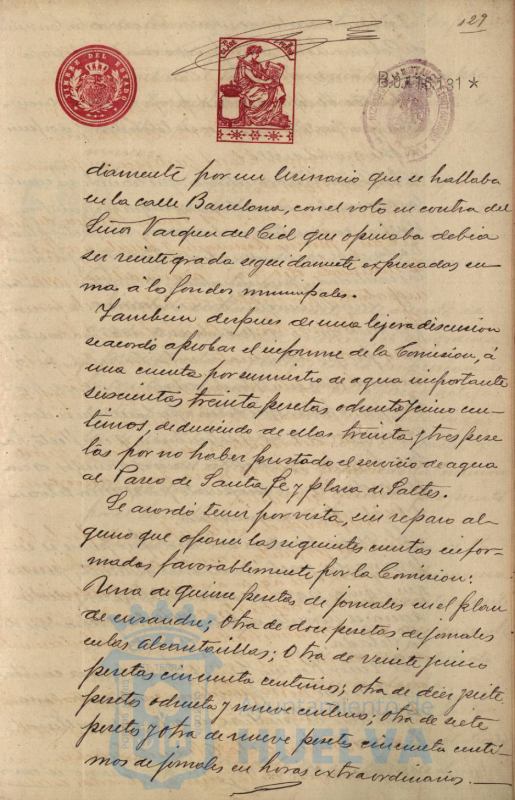 129
TIMBRE DEL ESTADO
B.0.716.181 *
diamente por un Urinario que se hallaba
en la calle Barcelona, con el voto en contra del
Señor Vazquez del Cid que opinaba debia
ser reintegrada seguidamente expresadas su
mas á lo fondos municipales.
Tambien despues de una lijera discusion
se acordó aprobar el informe de la Comision, á
una cuenta por suministro de agua importante
seiscientas treinta pesetas ochenta y cinco cen
timos, deduciendo de ellas treinta y tres pese
tas por no haber prestado el servicio de agua
al Paseo de Santa Fé y plaza de Saltes.
Se acordó tener por vista, sin reparo al
guno que oponer las siguientes cuentas infor
madas favorablemente por la Comision:
Una de quince pesetas de jornales en el plan
de ensanche; Otra de doce pesetas de jornales
en las alcantarillas; Otra de veinte y cinco
pesetas cincuenta centimos; otra de diez y siete
pesetas ochenta y nueve centimos; otra de siete
pesetas y otra de nueve pesetas cincuenta centi
mos de jornales en horas extraordinarias.
Ayuntamiento de
HUELVA